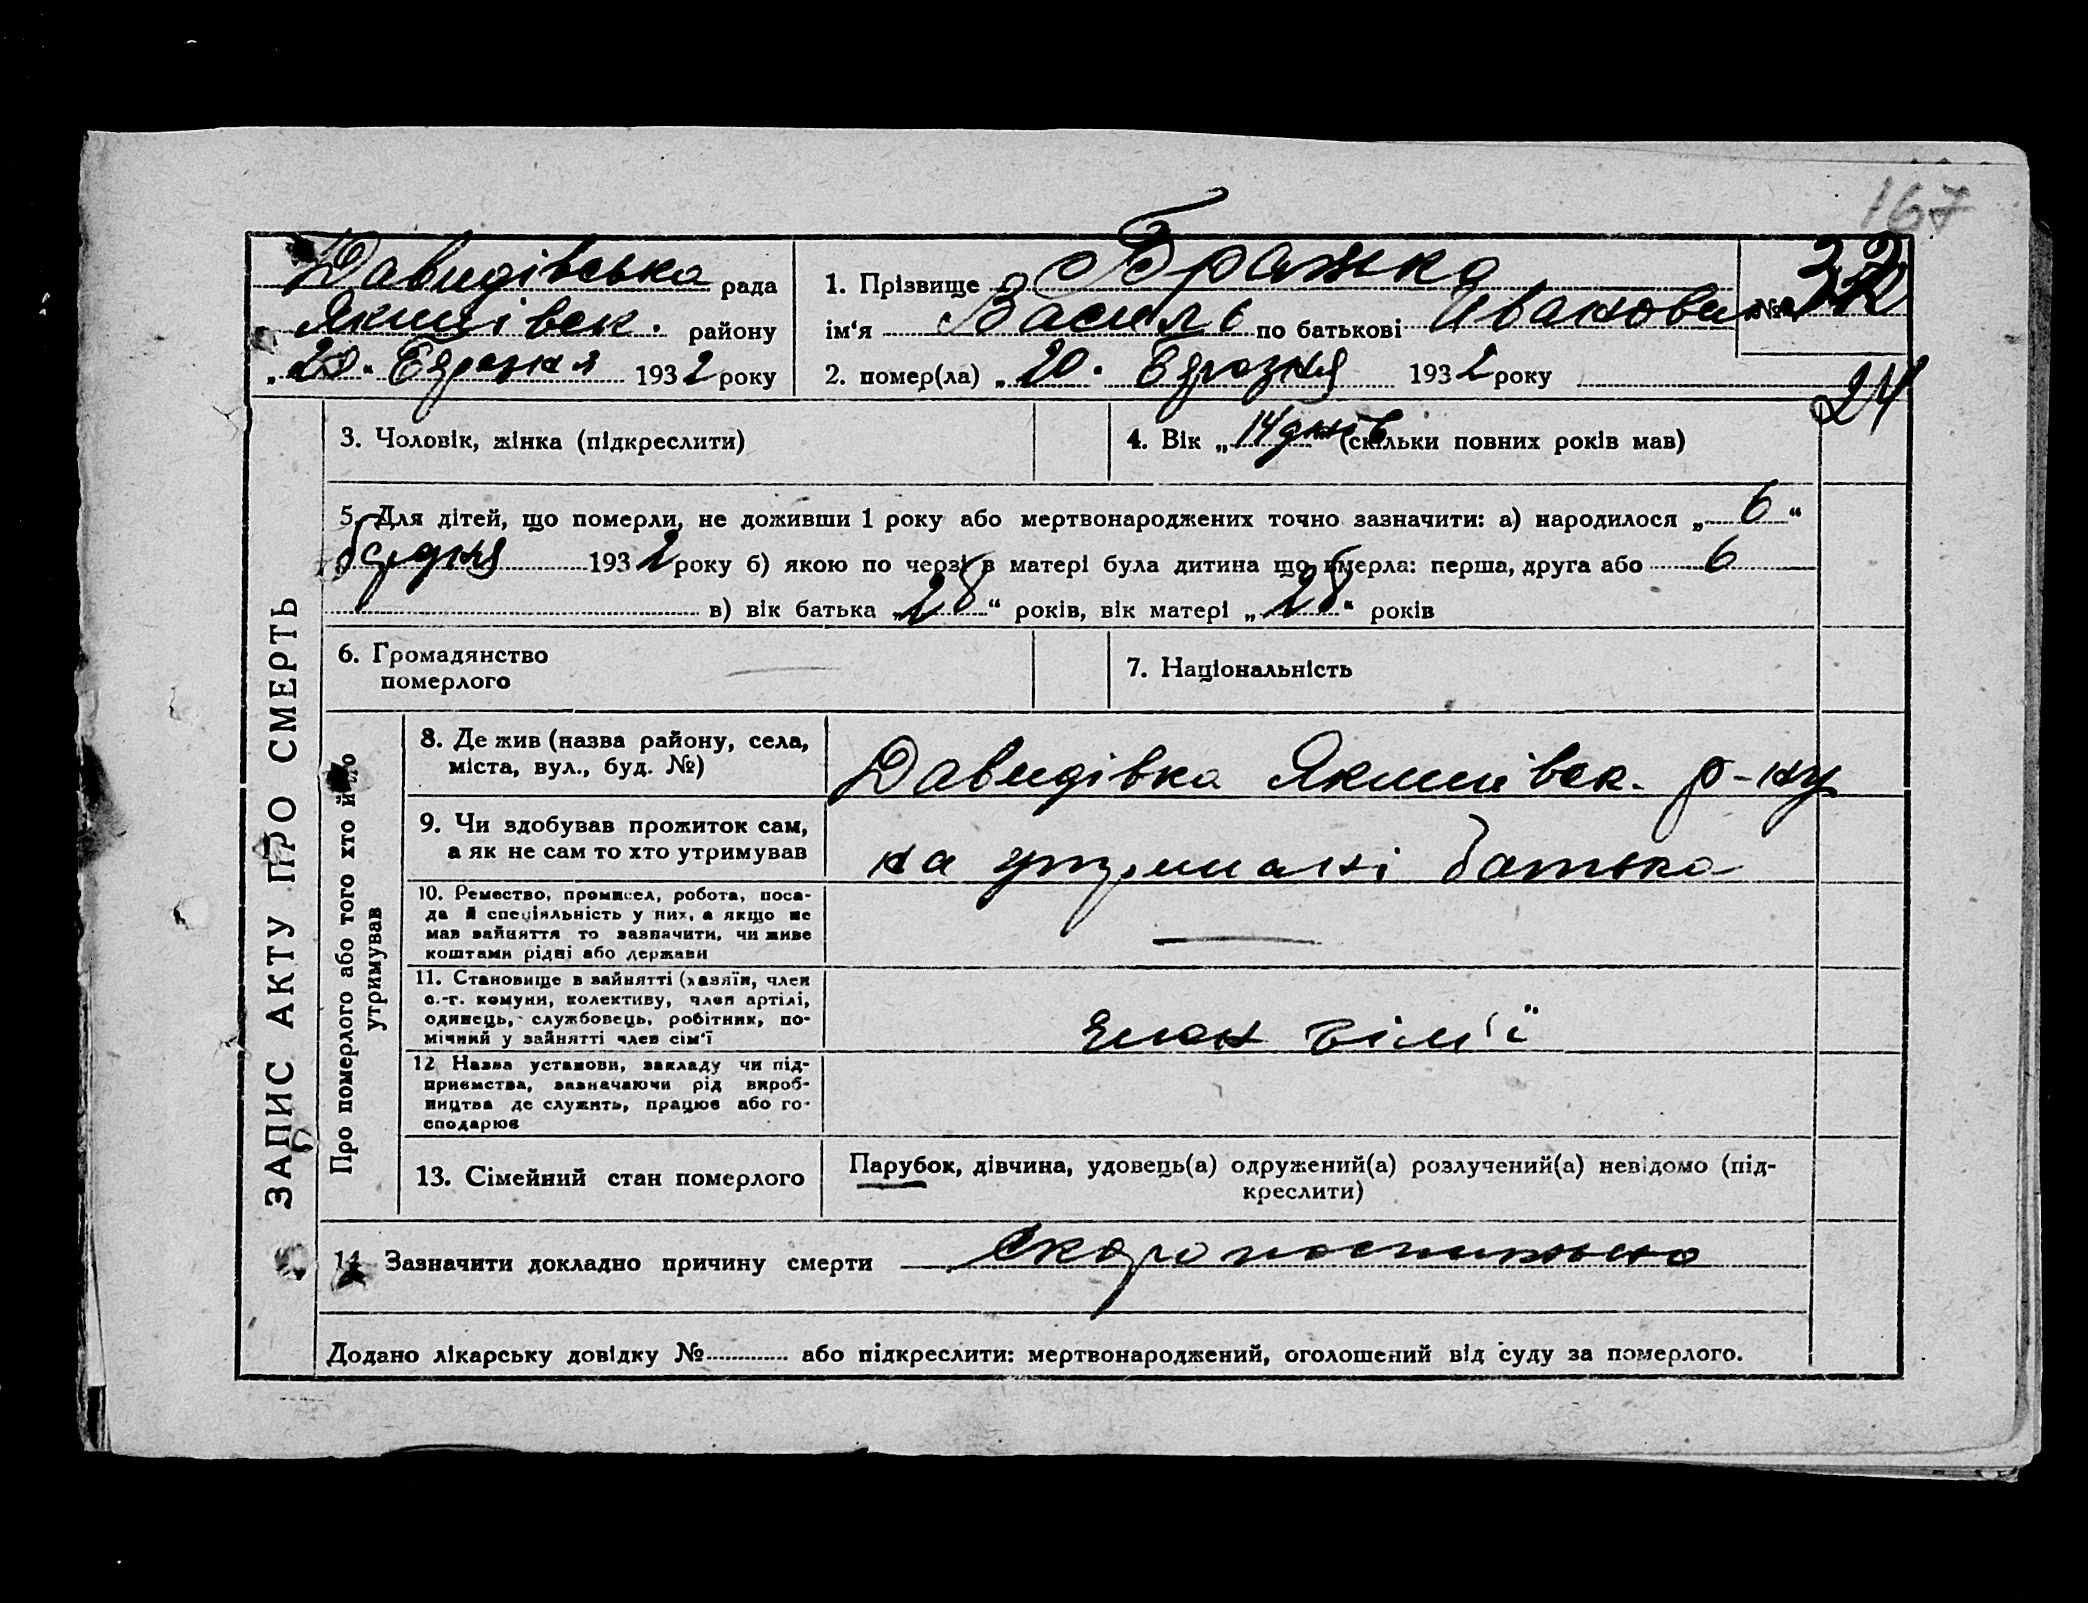 167
Давидівська рада
Якимівськ. району
„20“ Грудня 1932 року
1. Прізвище Бражка
ім‘я Василь по батькові Иванови
№ 32
2. помер(ла) „20. Грудня 1932 року
24
ЗАПИС АКТУ ПРО СМЕРТЬ
3. Чоловік, жінка (підкреслити)
4. Вік „14 днів (скільки повних років мав)
5. Для дітей, що померли, не доживши 1 року або мертвонароджених точно зазначити: а) народилося „6“
1932 року б) якою по черзі в матері була дитина що вмерла: перша, друга або 6
в) вік батька „28“ років, вік матері „28“ років
6. Громадянство
померлого
7. Національність
Про померлого або того хто його
утримував
8. Де жив (назва району, села,
міста, вул., буд. №)
Давидівка Якимівск. р-ну
9. Чи здобував прожиток сам,
а як не сам то хто утримував
на утриманні батька
10. Ремество, промисел, робота, поса-
да й спеціяльність у них, а якщо не
мав зайняття то зазначити, чи живе
коштами рідні або держави
11. Становище в зайнятті (хазяїн, член
с.-г. комуни, колективу, член артілі,
одинець, службовець, робітник, по-
мічний у зайнятті член сім‘ї
член сім‘ї
12 Назва установи, закладу чи під-
приємства, зазначаючи рід вироб-
ництва де служить, працює або го-
сподарює
13. Сімейний стан померлого
Парубок, дівчина, удовець(а) одружений(а) розлучений(а) невідомо (під-
креслити)
14. Зазначити докладно причину смерти Скоропостижно
Додано лікарську довідку № або підкреслити: мертвонароджений, оголошений від суду за померлого.